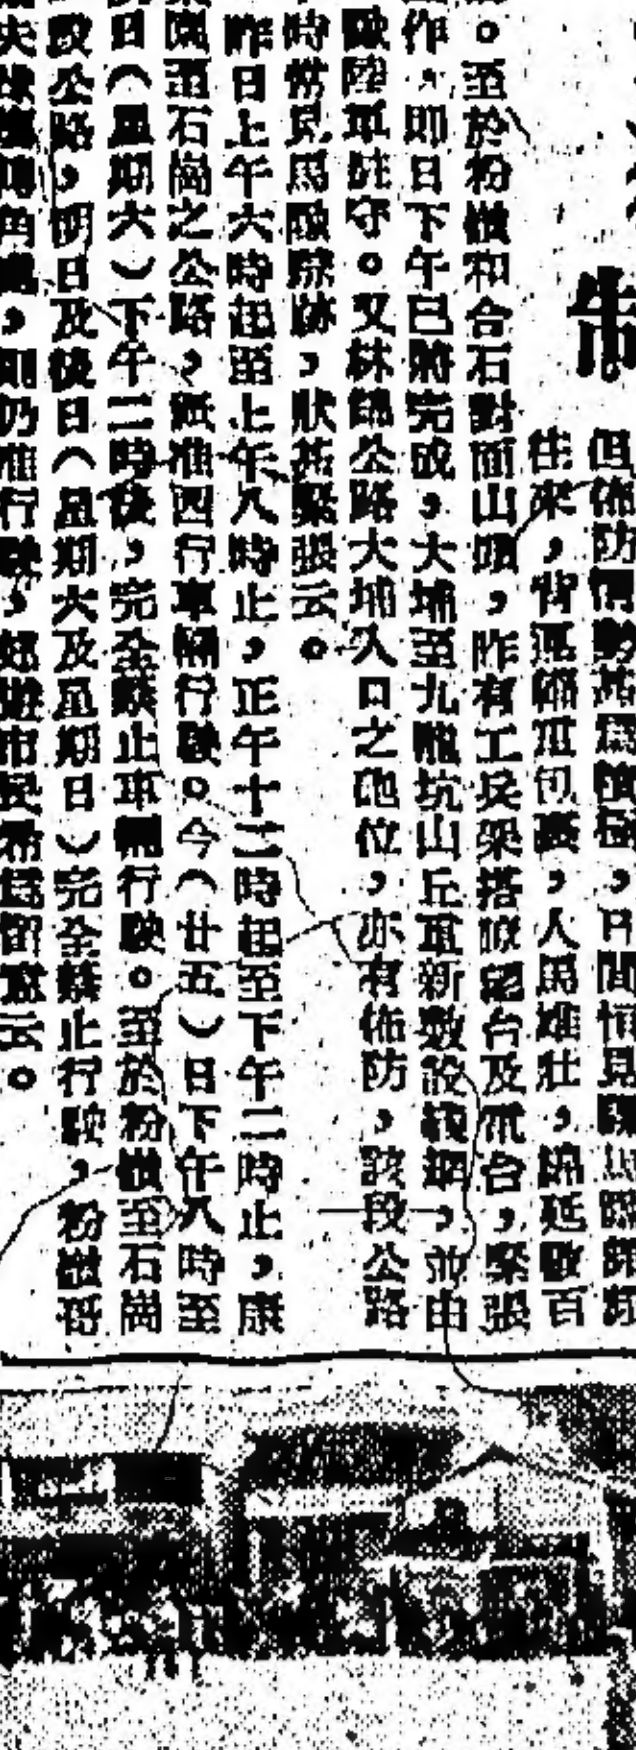 制
但佈防情勢甚為積極,日間恒見騾馬
往來,背馱,人馬雄壯,綿延數百
。至於粉嶺和合石對面山頭,昨有工兵架搭瞭望台及電台,緊張
作,即日下午已將完成,大埔至九龍坑山丘重新敷設鐵網,並由
陸軍駐守。又林錦公路大埔入口之砲位,亦有佈防,該段公路
時常見馬隊踪跡,狀甚緊張云。
昨日上午六時起至上午八時止,正午十二時起至下午二時止,康
至石崗之公路,祇准四行車輛行駛。今(廿五)日下午八時至
日(星期六)下午二時後,完全禁止車輛行駛。至於粉嶺至石崗
段公路,明日及後日(星期六及星期日)完全禁止行駛,粉嶺哥
夫球場,則仍准行駛,郊遊市民希為留意云。